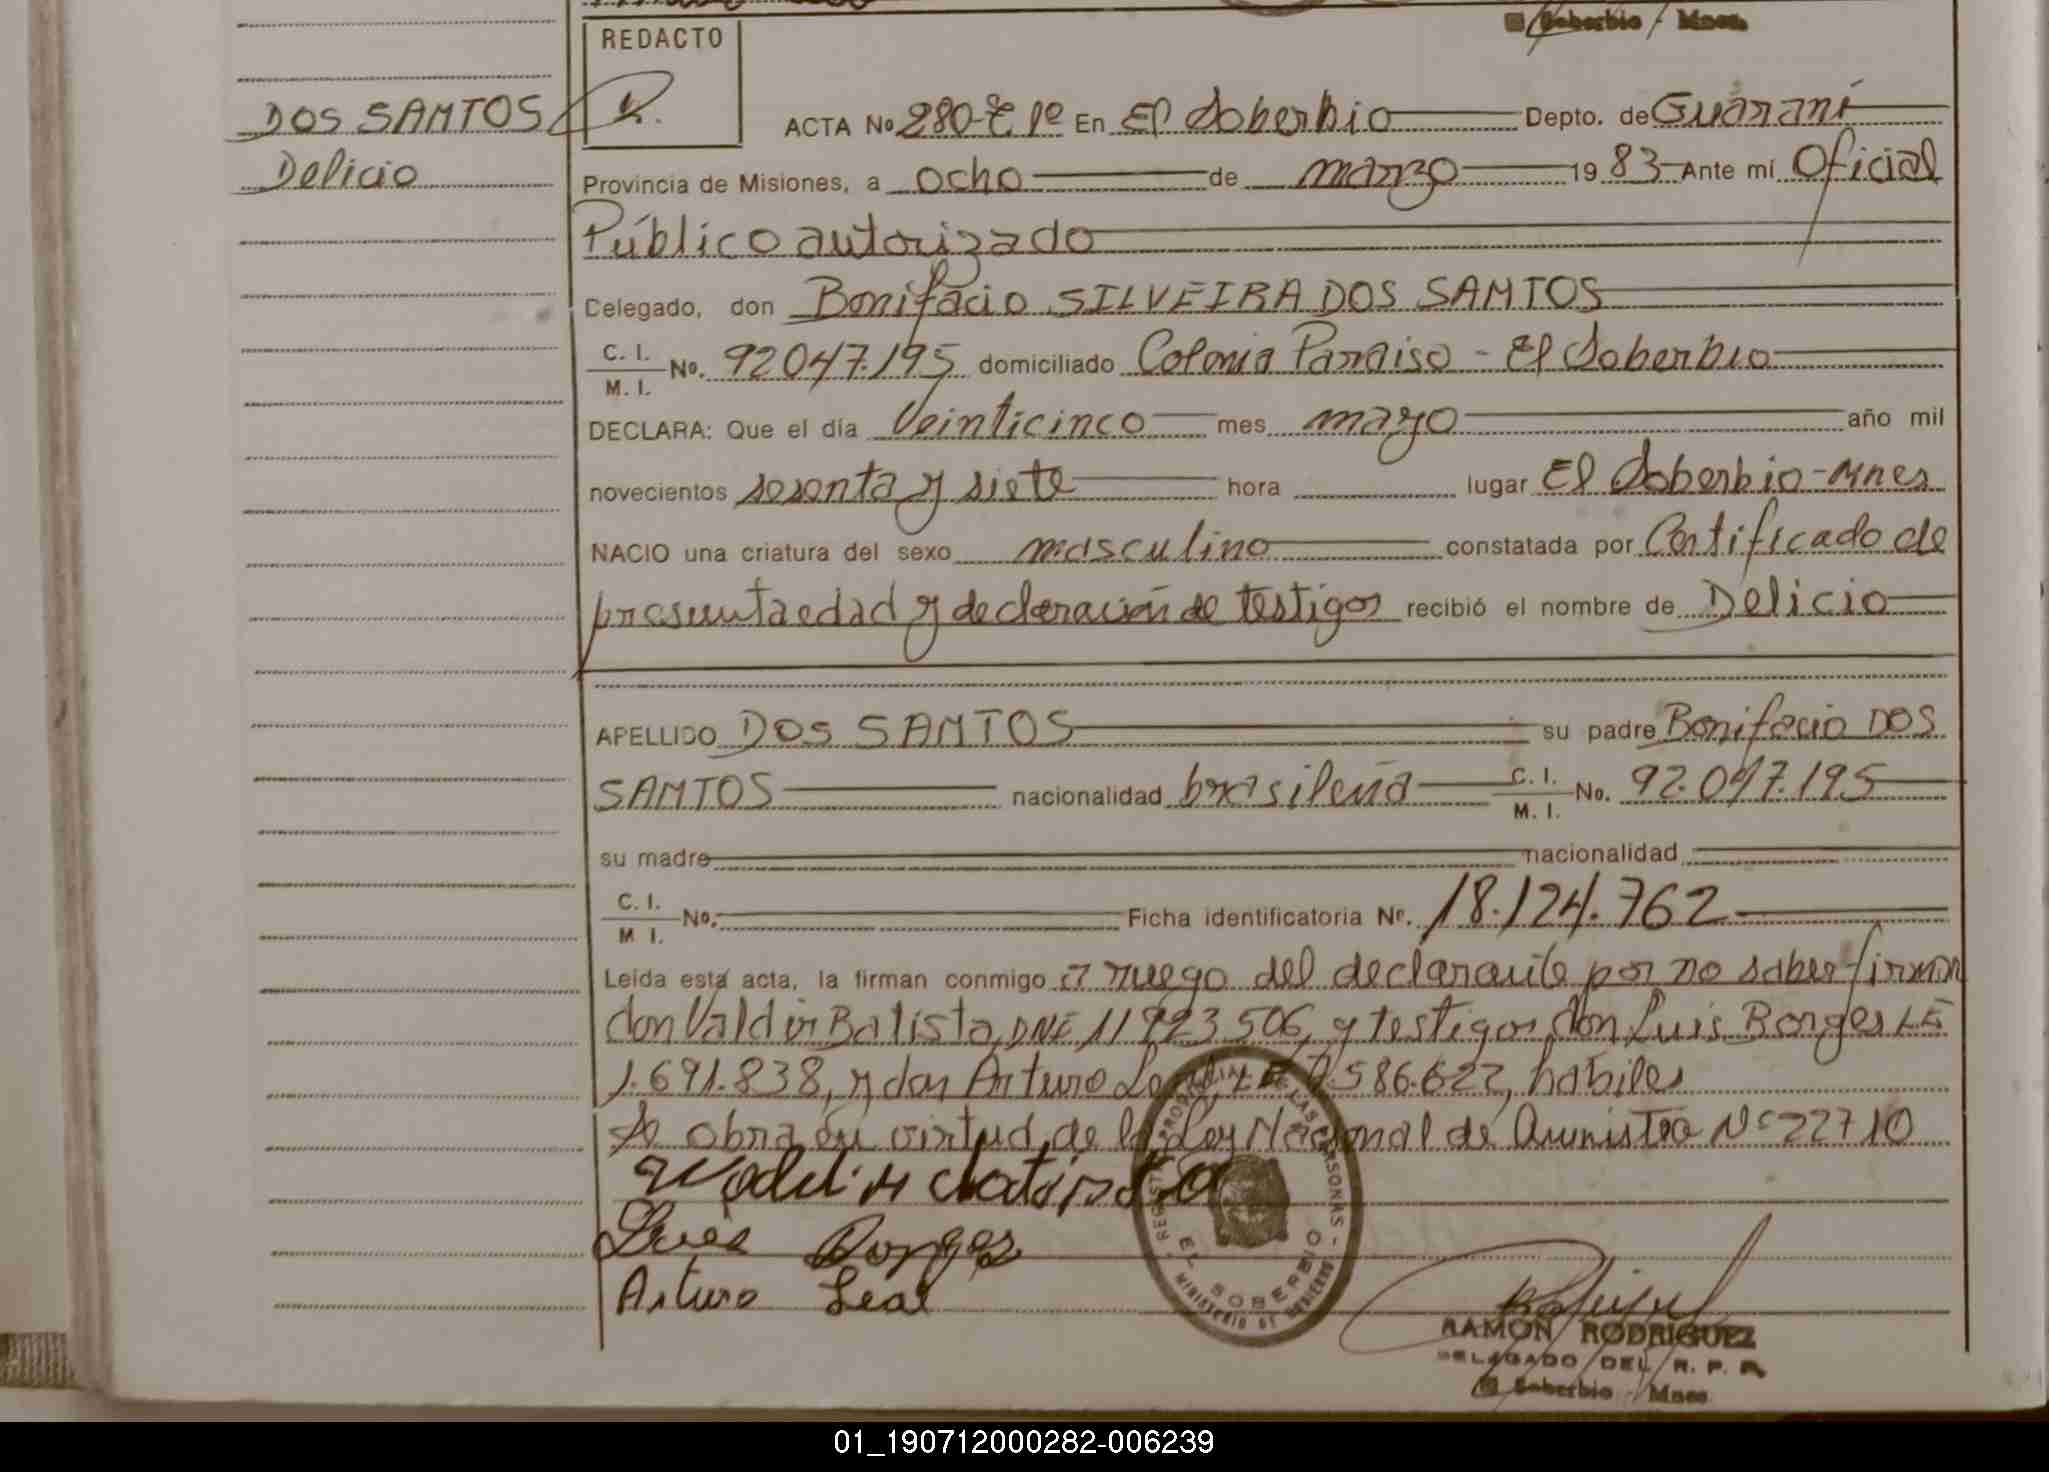 El Soberbio - Mnes.
REDACTO
DOS SANTOS
Delicio
ACTA No 280-T 1º En El Soberbio Depto. de Guaraní
Provincia de Misiones, a ocho de marzo 19 83 Ante mí Oficial
Público autorizado
Celegado, don Bonifacio SILVEIRA DOS SANTOS
C. I.
M. I. No. 92047.195 domiciliado Colonia Paraiso - El Soberbio
DECLARA: Que el día Veinticinco mes mayo año mil
novecientos sesenta y siete hora lugar El Soberbio-Mnes
NACIO una criatura del sexo masculino constatada por Certificado de
presunta edad y declaración de testigos recibió el nombre de Delicio
APELLIDO DOS SANTOS su padre Bonifacio DOS
SANTOS nacionalidad brasileña C. I.
M. I. No. 92.047.195
su madre nacionalidad
C. I.
M I. No. Ficha identificatoria Nº. 18.124.762
Leída esta acta, la firman conmigo a ruego del declarante por no saber firmar
don Valdir Batista, DNI 11 923 506, y testigos don Luis Borges LE
1.691.838, y don Arturo Leal, LE 7.586.622, habiles
So obra en virtud de la Ley Nacional de Amnistia Nº 22710
Valdir Batista
Luis Borges
Arturo Leal
REGISTRO PROVINCIAL DE LAS PERSONAS
EL SOBERBIO
MINISTERIO DE GOBIERNO
RAMON RODRIGUEZ
DELEGADO DEL R. P. P.
El Soberbio - Mnes.
01_190712000282-006239